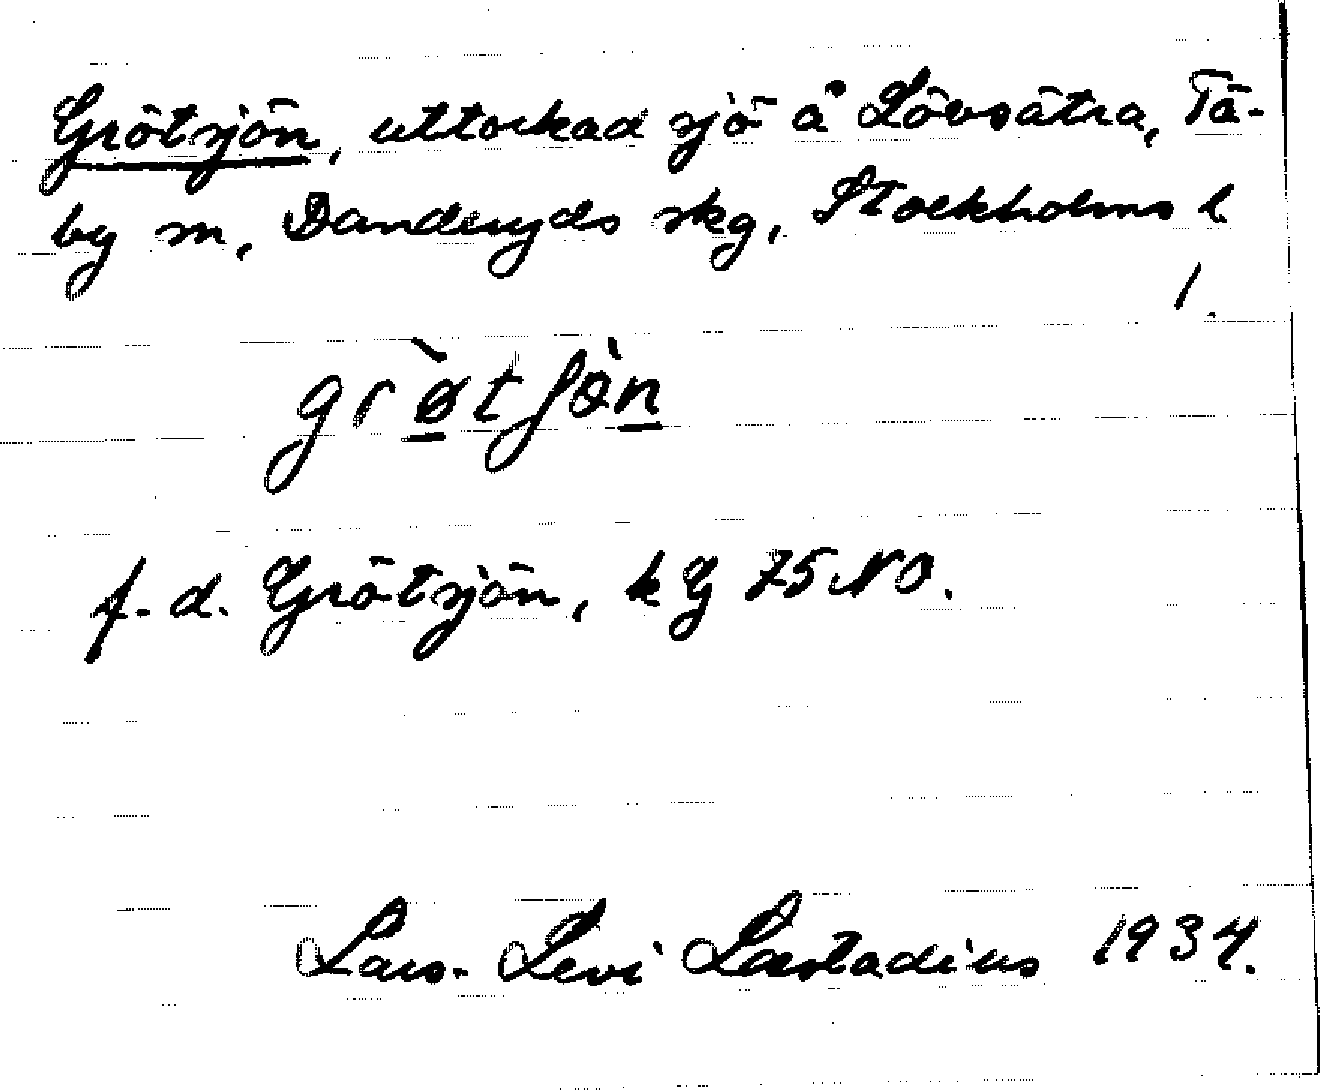 Grötsjön, uttorkad sjö å Lövsätra, Tä-
by sn, Danderyds skg, Stockholms l.
1.
grø̀tʃə̀n
f. d. Grötsjön, kg 75 NO.
Lars-Levi Læstadius 1934.